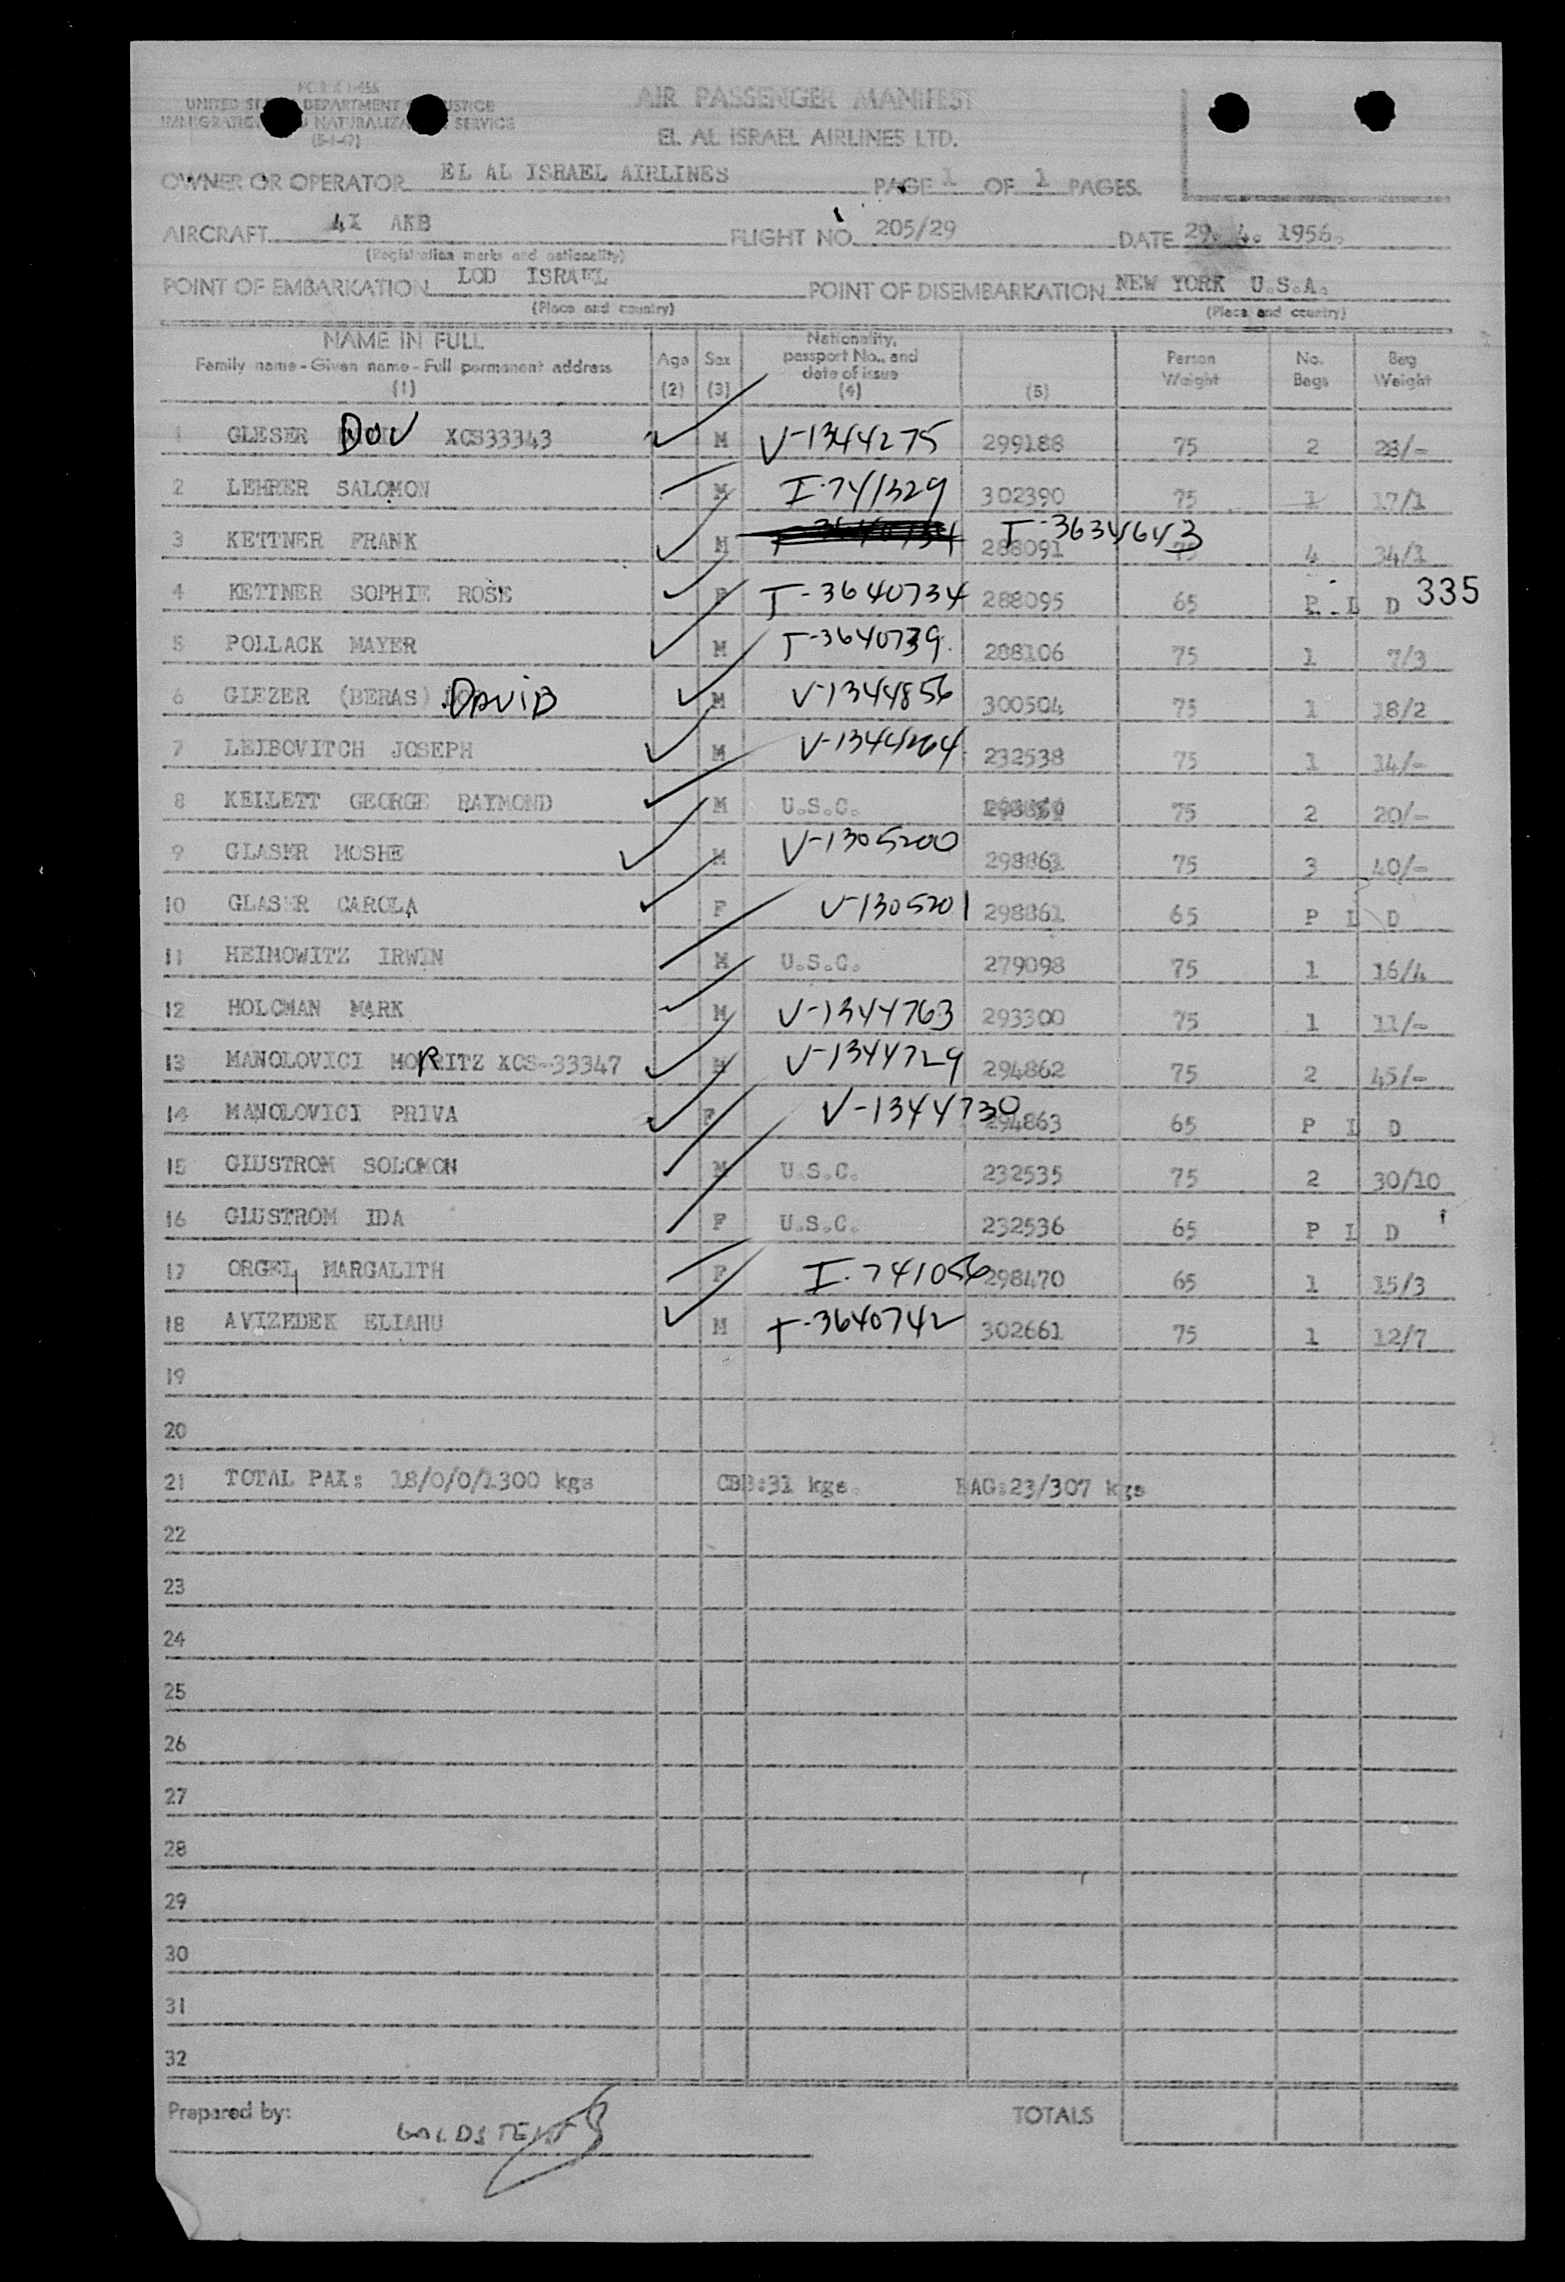 FORM I-466
UNITED STATES DEPARTMENT OF JUSTICE
IMMIGRATION AND NATURALIZATION SERVICE
AIR PASSENGER MANIFEST
EL AL ISRAEL AIRLINES LTD.
OWNER OR OPERATOR EL AL ISRAEL AIRLINES PAGE 1 OF 1 PAGES.
AIRCRAFT 4X AKB FLIGHT NO. 205/29 DATE 29. 4. 1956.
(Registration marks and nationality)
POINT OF EMBARKATION LOD ISRAEL POINT OF DISEMBARKATION NEW YORK U.S.A.
(Place and country) (Place and country)
NAME IN FULL Family name - Given name - Full permanent address (1) Age (2) Sex (3) Nationality, passport No., and date of issue (4) (5) Person Weight No. Bags Bag Weight
1 GLESER DOV XCS33343 M V-1344275 299188 75 2 28/-
2 LEHRER SALOMON M I-741329 302390 75 1 17/1
3 KETTNER FRANK M T-3634643 288091 75 4 34/1
4 KETTNER SOPHIE ROSE F T-3640734 288095 65 P L D 335
5 POLLACK MAYER M T-3640739 288106 75 1 7/3
6 GLEZER (BERAS) DAVID M V-1344856 300504 75 1 18/2
7 LEIBOVITCH JOSEPH M V-1344264 232538 75 1 14/-
8 KELLETT GEORGE RAYMOND M U.S.C. 75 2 20/-
9 GLASER MOSHE M V-1305200 298863 75 3 40/-
10 GLASER CAROLA F V-1305201 298861 65 P L D
11 HEIMOWITZ IRWIN M U.S.C. 279098 75 1 16/4
12 HOLCMAN MARK M V-1344763 293300 75 1 11/-
13 MANOLOVICI MORRITZ XCS-33347 M V-1344729 294862 75 2 45/-
14 MANOLOVICI PRIVA F V-1344730 294863 65 P L D
15 GLUSTROM SOLOMON M U.S.C. 232535 75 2 30/10
16 GLUSTROM IDA F U.S.C. 232536 65 P L D
17 ORGEL MARGALITH F I-741056 298470 65 1 15/3
18 AVIZEDEK ELIAHU M T-3640742 302661 75 1 12/7
19
20
21 TOTAL PAX: 18/0/0/1300 kgs CBB:31 kgs. BAG:23/307 kgs
22
23
24
25
26
27
28
29
30
31
32
Prepared by: GOLDSTEIN TOTALS